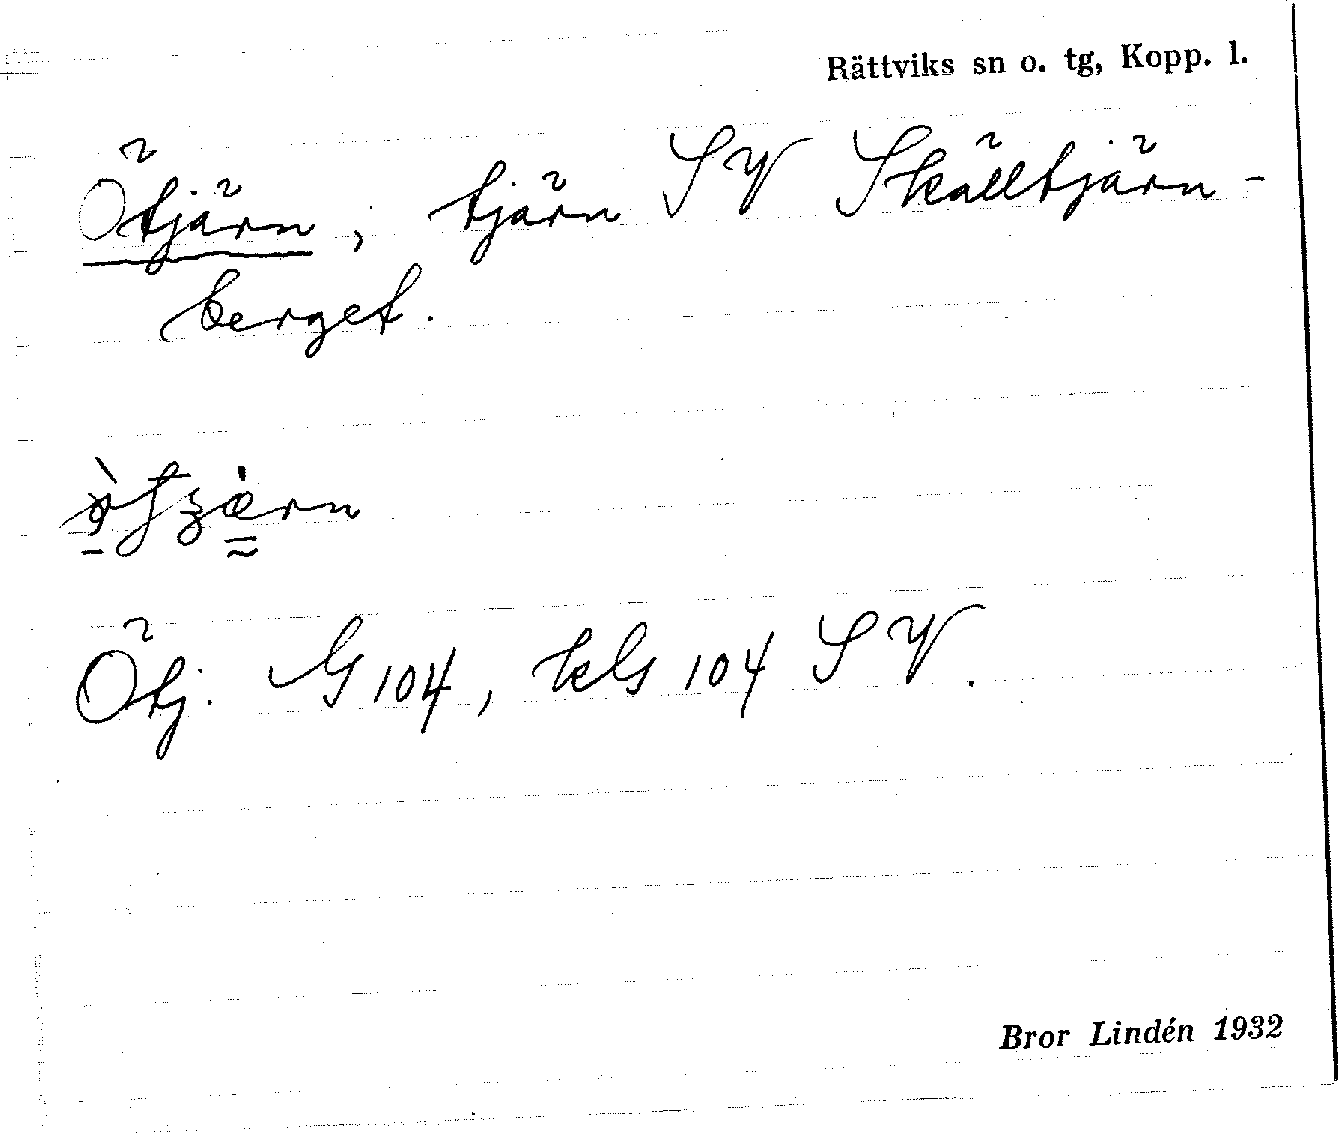 Rättviks sn o. tg, Kopp. l.
Ötjärn, tjärn SV Skälltjärn-
berget.
Ötj. G 104, kls 104 SV.
Bror Lindén 1932